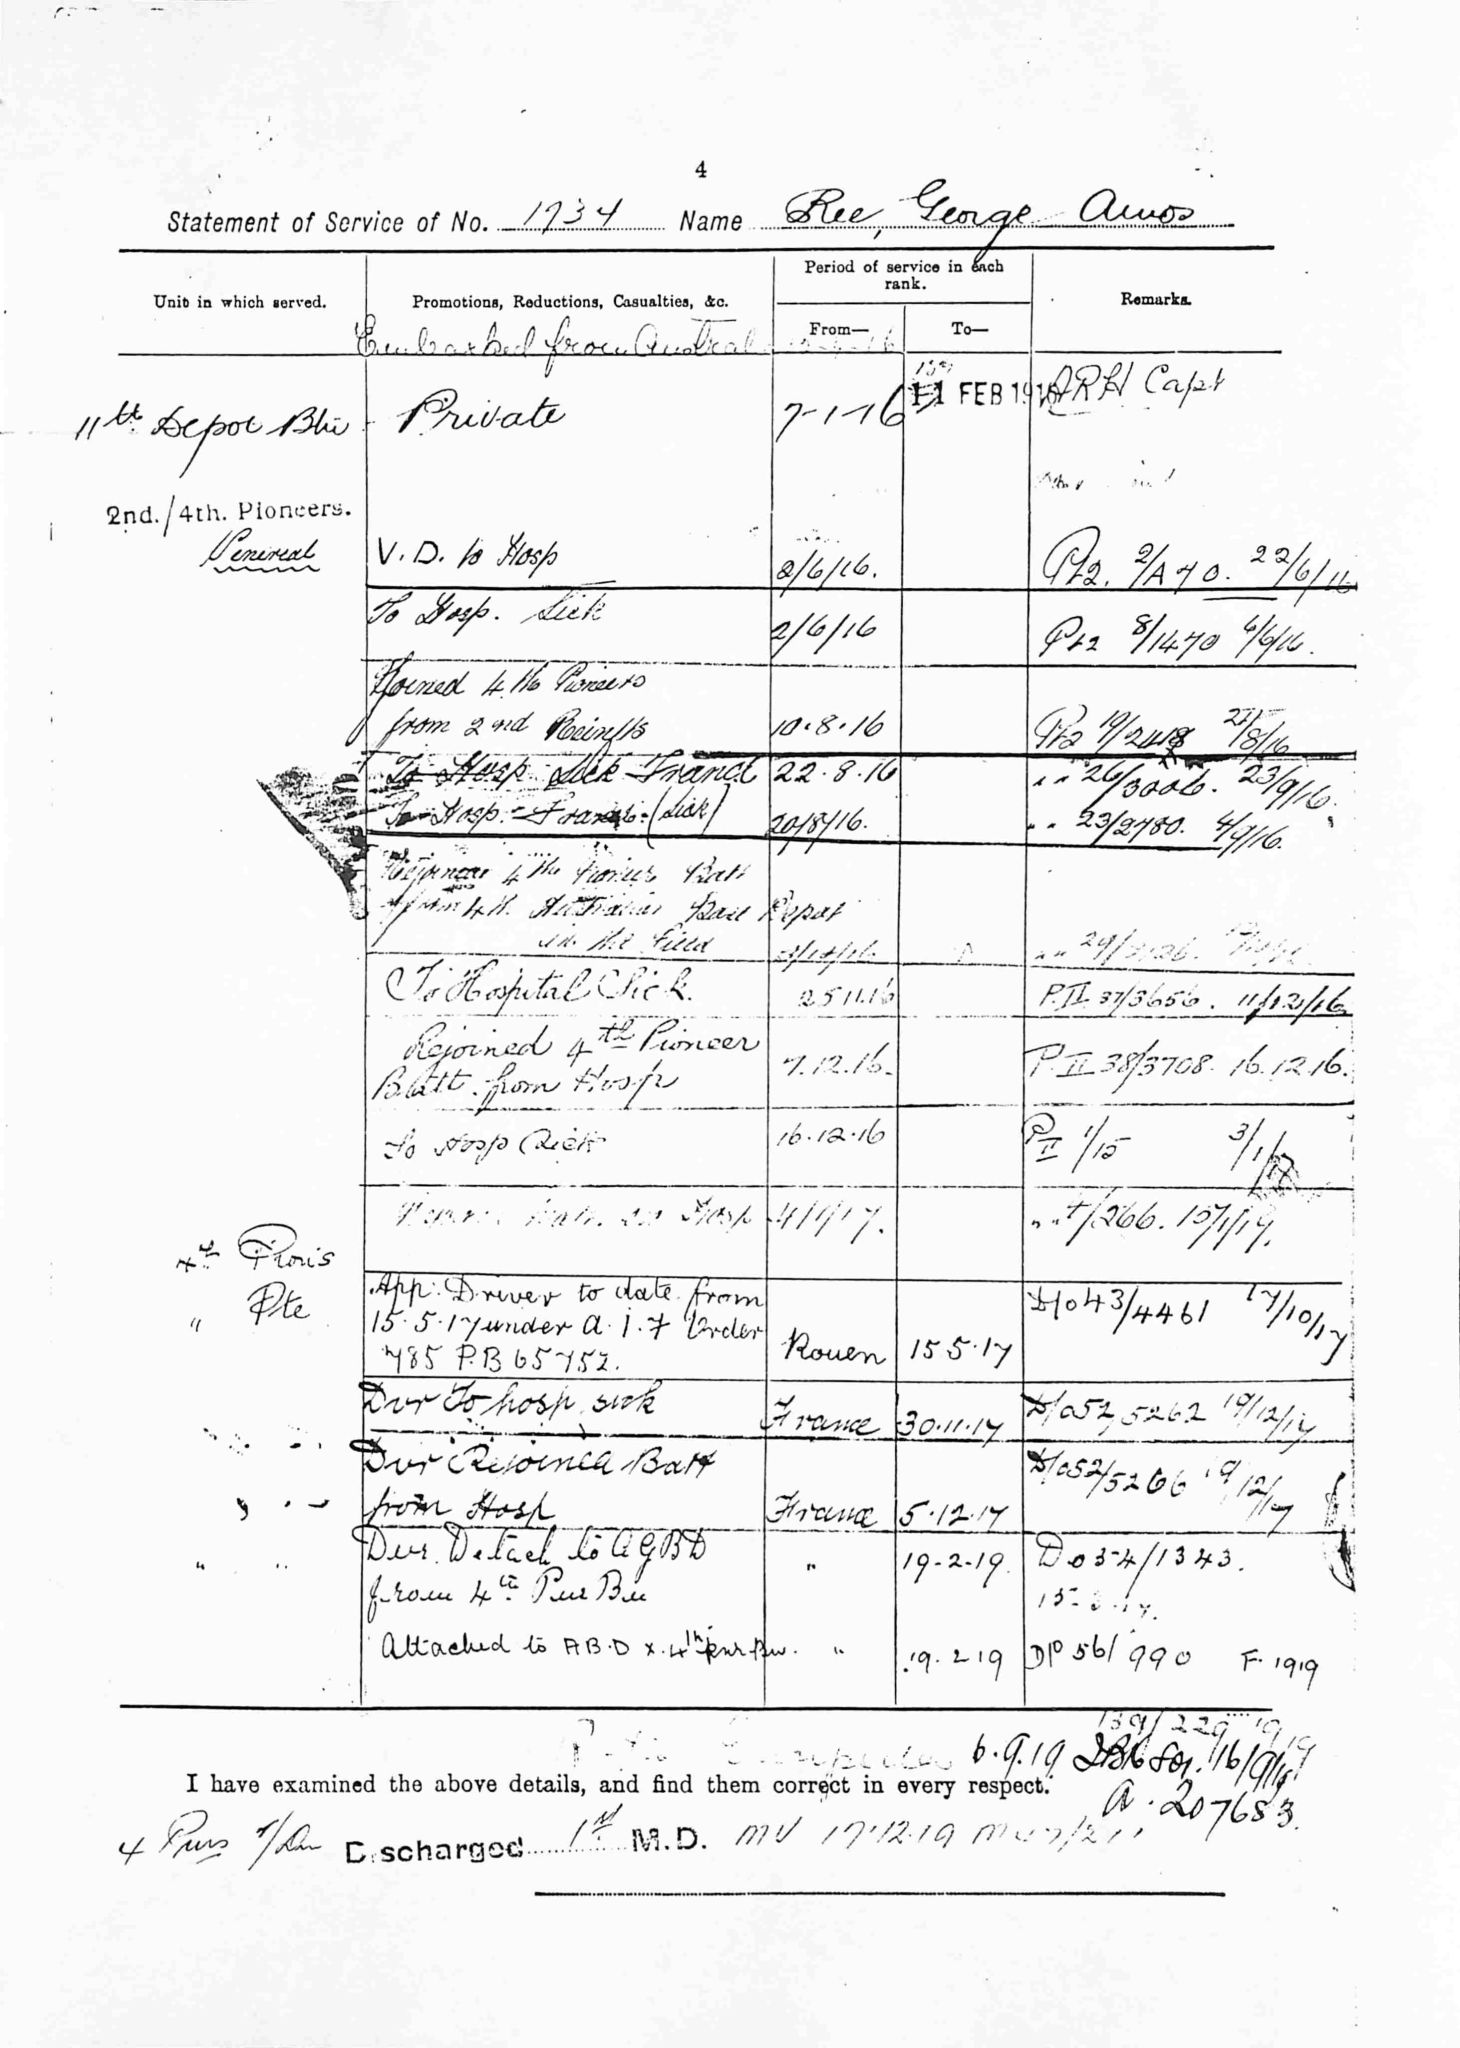 4
Statement of Service of No. 1734 Name Ree, George Amos
Unit in which served.
Promotions, Reductions, Casualties, &c.
Period of service in each rank.
From—
To—
Remarks.
Embarked from Austral
11th Depot Btn Private 7-1-16 11 FEB 1916 ARH Capt
2nd./4th. Pioneers.
Venereal V.D. to Hosp 2/6/16. Pt2. 2/A70. 22/6/16
To Hosp. Sick 2/6/16 Pt2 8/1470 6/6/16.
Joined 4.th Pioneers
from 2nd Reinfts 10.8.16 Pt2 19/2418 21/8/16
To Hosp Sick France 22.8.16 " " 26/3006. 23/9/16.
To Hosp - France - (Sick) 20/8/16. " " 23/2780. 4/9/16.
Rejoined 4th Pioneer Batt
from 4th Australian Base Depot
in the Field " " 29/
To Hospital Sick. 25 11.16 P.II 37/3656. 11/12/16
Rejoined 4th Pioneer
Batt. from Hosp 7.12.16. P.II 38/3708. 16.12.16.
To Hosp Sick 16.12.16 PII 1/15 3/1/17
Hosp 4/1/17. " " 4/266. 15/1/17.
4th Pion's
" Pte App: Driver to date from
15.5.17 under A.I.F Order
785 P.B 65752. Rouen 15 5.17 D/o 43/4461 17/10/17
Dvr To hosp sick France 30.11.17 D/o 52/5262 19/12/17
Dvr Rejoined Batt
from Hosp France 5.12.17 D/o 52/5266 19/12/17
" " Dvr. Detach to AGBD " 19-2-19. Do 34/1343.
from 4th Pnr Bn
Attached to A.B.D x. 4th pnr Bn. " 19.2 19 DO 56/990 F. 1919
139/229
6.9.19
I have examined the above details, and find them correct in every respect.
A. 207683.
4 Pnrs Discharged 1st M.D. MU 17.12.19